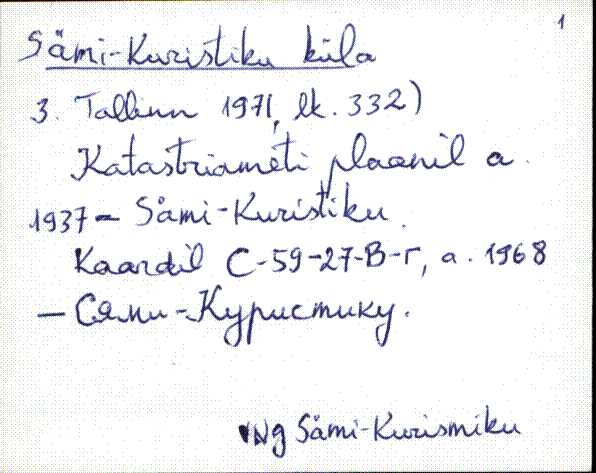 1
Sämi-Kuristiku küla
3. Tallinn 1971, lk. 332)
Katastriameti plaanil a.
1937 - Sämi-Kuristiku.
Kaardil C-59-27-В-г, a. 1968
- Сями-Куристику.
Vrd Sämi-Kurismiku